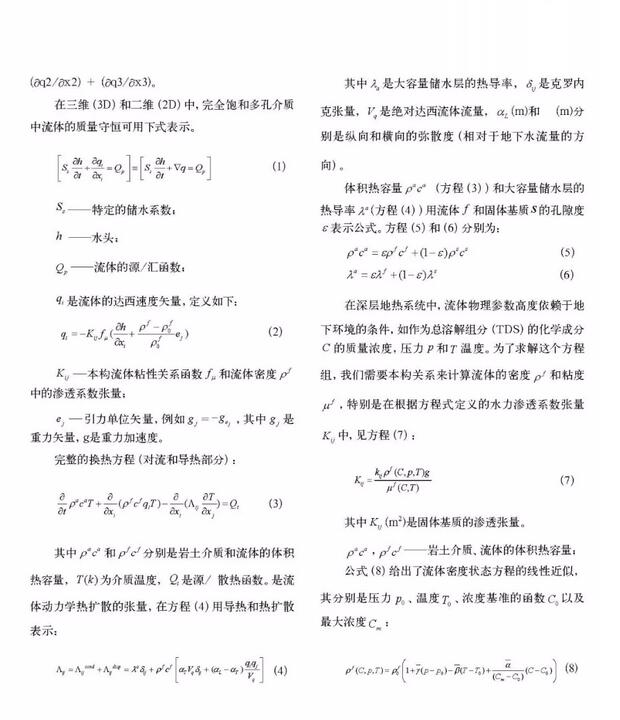 (∂q2/∂x2) + (∂q3/∂x3)。
在三维 (3D) 和二维 (2D) 中, 完全饱和多孔介质
中流体的质量守恒可用下式表示。
[S_s ∂h/∂t + ∂q_i/∂x_i = Q_p] = [S_s ∂h/∂t + ∇q = Q_p] (1)
S_s ——特定的储水系数;
h ——水头;
Q_p ——流体的源/汇函数;
q_i 是流体的达西速度矢量, 定义如下:
q_i = -K_ij f_μ (∂h/∂x_i + (ρ^f - ρ_0^f)/ρ_0^f e_j) (2)
K_ij —本构流体粘性关系函数 f_μ 和流体密度 ρ^f
中的渗透系数张量;
e_j —引力单位矢量, 例如 g_j = -g_ej , 其中 g_j 是
重力矢量, g是重力加速度。
完整的换热方程 (对流和导热部分) :
∂/∂t ρ^a c^a T + ∂/∂x_i (ρ^f c^f q_i T) - ∂/∂x_i (Λ_ij ∂T/∂x_j) = Q_t (3)
其中 ρ^a c^a 和 ρ^f c^f 分别是岩土介质和流体的体积
热容量, T(k) 为介质温度, Q_t 是源/ 散热函数。是流
体动力学热扩散的张量, 在方程 (4) 用导热和热扩散
表示:
Λ_ij = Λ_ij^cond + Λ_ij^disp = λ^a δ_ij + ρ^f c^f [α_T V_q δ_ij + (α_L - α_T) q_i q_j / V_q] (4)
其中 λ_a 是大容量储水层的热导率, δ_ij 是克罗内
克张量, V_q 是绝对达西流体流量, α_L (m)和 (m)分
别是纵向和横向的弥散度 (相对于地下水流量的方
向) 。
体积热容量 ρ^a c^a (方程 (3) ) 和大容量储水层的
热导率 λ^a (方程 (4) ) 用流体 f 和固体基质 s 的孔隙度
ε 表示公式。方程 (5) 和 (6) 分别为:
ρ^a c^a = ερ^f c^f + (1-ε)ρ^s c^s (5)
λ^a = ελ^f + (1-ε)λ^s (6)
在深层地热系统中, 流体物理参数高度依赖于地
下环境的条件, 如作为总溶解组分 (TDS) 的化学成分
C 的质量浓度, 压力 p 和 T 温度。为了求解这个方程
组, 我们需要本构关系来计算流体的密度 ρ^f 和粘度
μ^f , 特别是在根据方程式定义的水力渗透系数张量
K_ij 中, 见方程 (7) :
K_ij = k_ij ρ^f (C,p,T)g / μ^f (C,T) (7)
其中 K_ij (m²)是固体基质的渗透张量。
ρ^a c^a , ρ^f c^f ——岩土介质、流体的体积热容量;
公式 (8) 给出了流体密度状态方程的线性近似,
其分别是压力 p_0 、温度 T_0 、浓度基准的函数 C_0 以及
最大浓度 C_m :
ρ^f (C,p,T) = ρ_0^f (1 + γ̅(p-p_0) - β̅(T-T_0) + α̅/(C_m-C_0) (C-C_0)) (8)